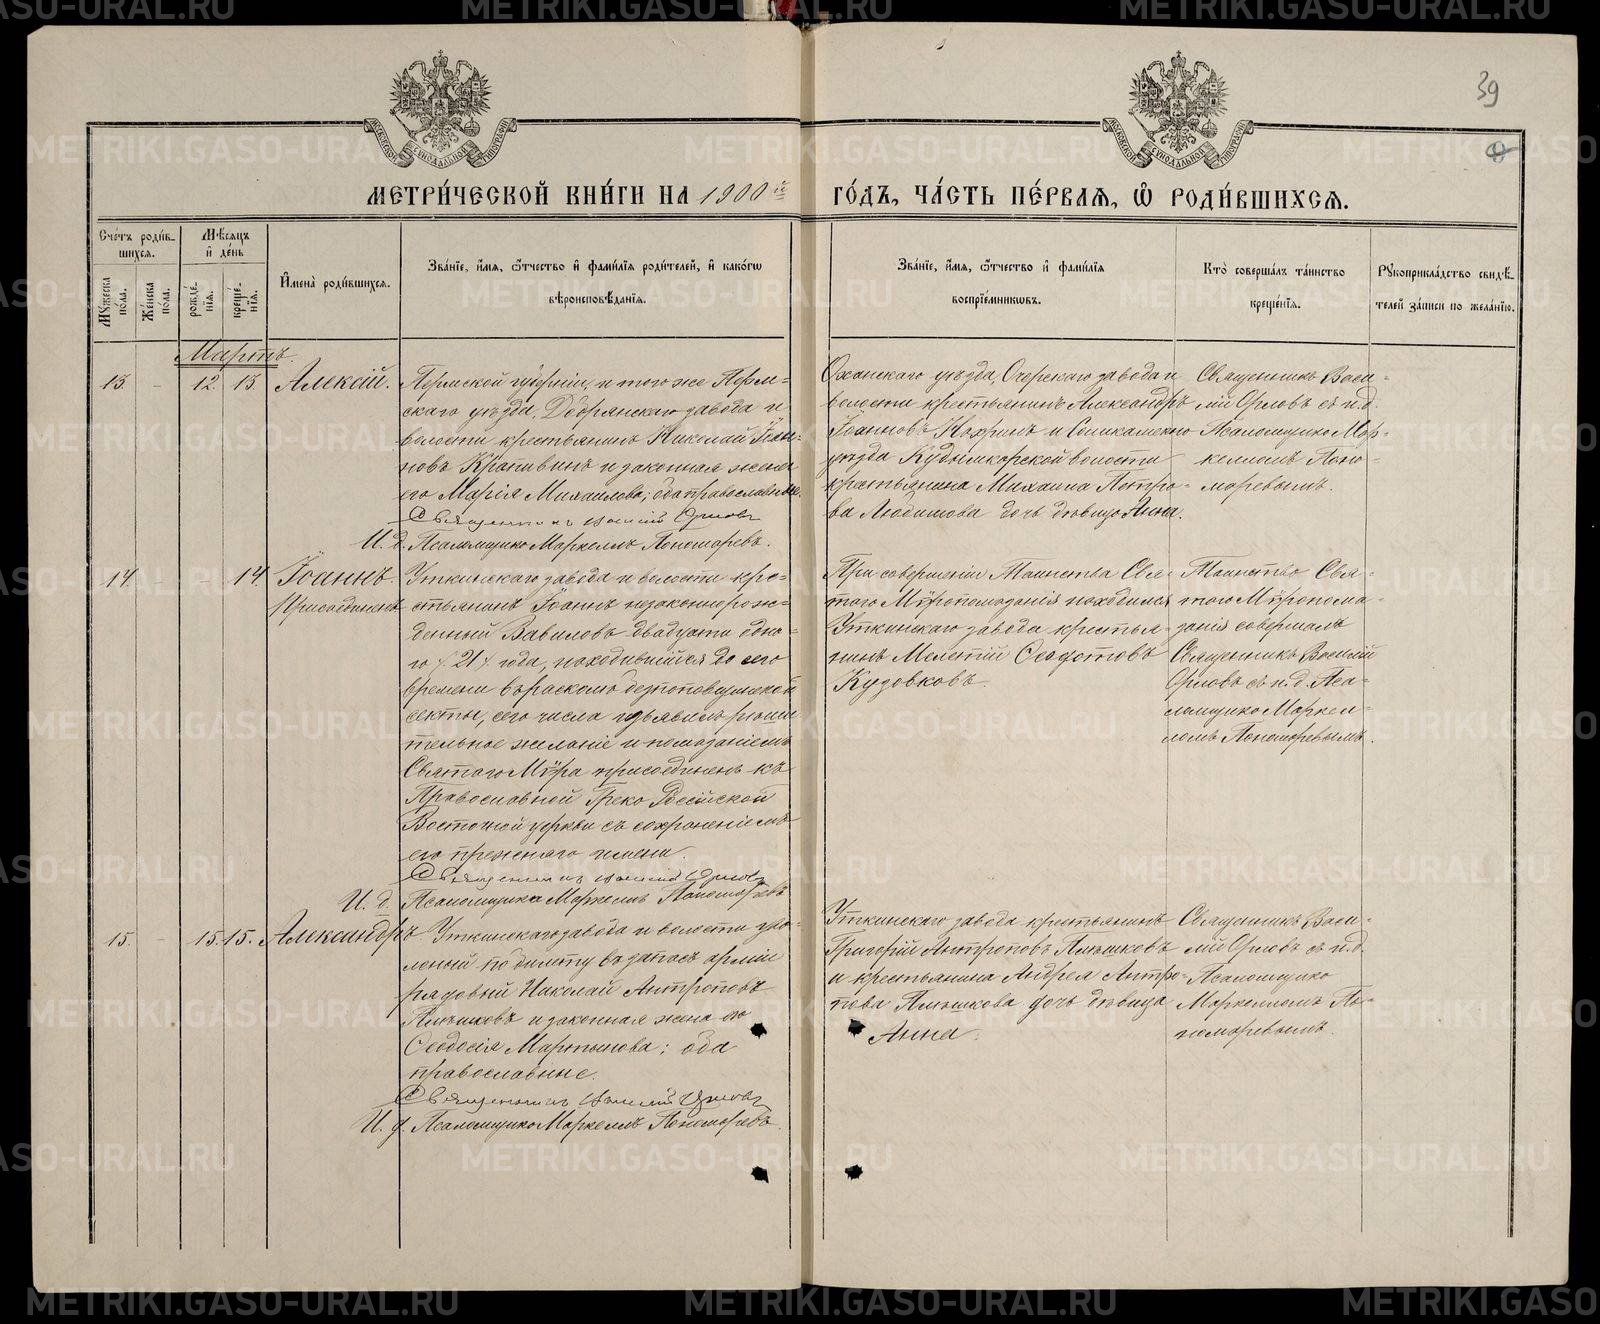 39
МЕТРИ́ЧЕСКОЙ КНИ́ГИ НА 1900й ГО́ДЪ, ЧА́СТЬ ПЕ́РВАЯ, Ѡ҆ РОДИ́ВШИХСЯ.
Сче́тъ роди́в-
шихся.
Мꙋ́жеска по́ла.
Же́нска по́ла.
Мѣ́сяцъ
и҆ де́нь
рожде́-
нїя.
креще́-
нїя.
И҆мена̀ роди́вшихся.
Зва́нїе, и҆́мя, ѻ҆́тчество и҆ фами́лїя роди́телей, и҆ како́гѡ
вѣроисповѣ́данїя.
Зва́нїе, и҆́мя, ѻ҆́тчество и҆ фами́лїя
воспрїе́мникѡвъ.
Кто̀ соверша́лъ та́инство
креще́нїя.
Рꙋкоприкла́дство свидѣ́-
телей за́писи по жела́нїю.
Мартъ.
13. - 12. 13. Алексій.
Пермской губерніи, и того же Перм-
скаго уѣзда, Добрянскаго завода и
волости крестьянинъ Николай Іоан-
новъ Крапивинъ и законная жена
его Марія Михаилова; оба православные.
Священникъ Василій Орловъ
И. д. Псаломщика Маркеллъ Пономаревъ.
Оханскаго уѣзда, Очерскаго завода и
волости крестьянинъ Александръ
Іоанновъ Кохринъ и Соликамскаго
уѣзда Кудымкорской волости
крестьянина Михаила Петро-
ва Людишова дочь дѣвица Анна.
Священникъ Васи-
лій Орловъ съ и. д.
Псаломщика Мар-
келломъ Поно-
маревымъ.
14. - - 14. Іоаннъ.
Присоединенъ
Уткинскаго завода и волости кре-
стьянинъ Іоаннъ незаконнорож-
денный Вавиловъ двадцати одно-
го /21/ года, находившійся до сего
времени въ расколѣ безпоповщинской
секты, сего числа изъявилъ рѣши
тельное желаніе и помазаніемъ
Святаго Мѵра присоединенъ къ
Православной Греко Россійской
Восточной церкви съ сохраненіемъ
его прежняго имени.
Священникъ Василій Орловъ
И. д. Псаломщика Маркеллъ Пономаревъ
При совершеніи Таинства Свя-
таго Мѵропомазанія находился
Уткинскаго завода крестья-
нинъ Мелетій Ѳеодотовъ
Кузовковъ.
Таинство Свя-
таго Мѵропома-
занія совершалъ
Священникъ Василій
Орловъ съ и. д. Пса-
ломщика Маркел-
ломъ Пономаревымъ.
15. - 15. 15. Александръ
Уткинскаго завода и волости уво-
леный по билету въ запасъ арміи
рядовый Николай Антроповъ
Плѣшковъ и законная жена его
Ѳеодосія Мартынова; оба
православные.
Священникъ Василій Орловъ
И. д. Псаломщика Маркеллъ Пономаревъ.
Уткинскаго завода крестьянинъ
Григорій Антроповъ Плѣшковъ
и крестьянина Андрея Антро-
пова Плѣшкова дочь дѣвица
Анна.
Священникъ Васи-
лій Орловъ съ и. д.
Псаломщика
Маркелломъ По-
номаревымъ.
METRIKI.GASO-URAL.RU